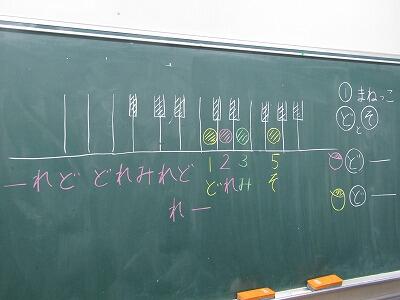 ① まねっこ
ど と そ
1 2 3 5
どれみ そ
ーれど どれみれど
れー
ど ー
ど ー